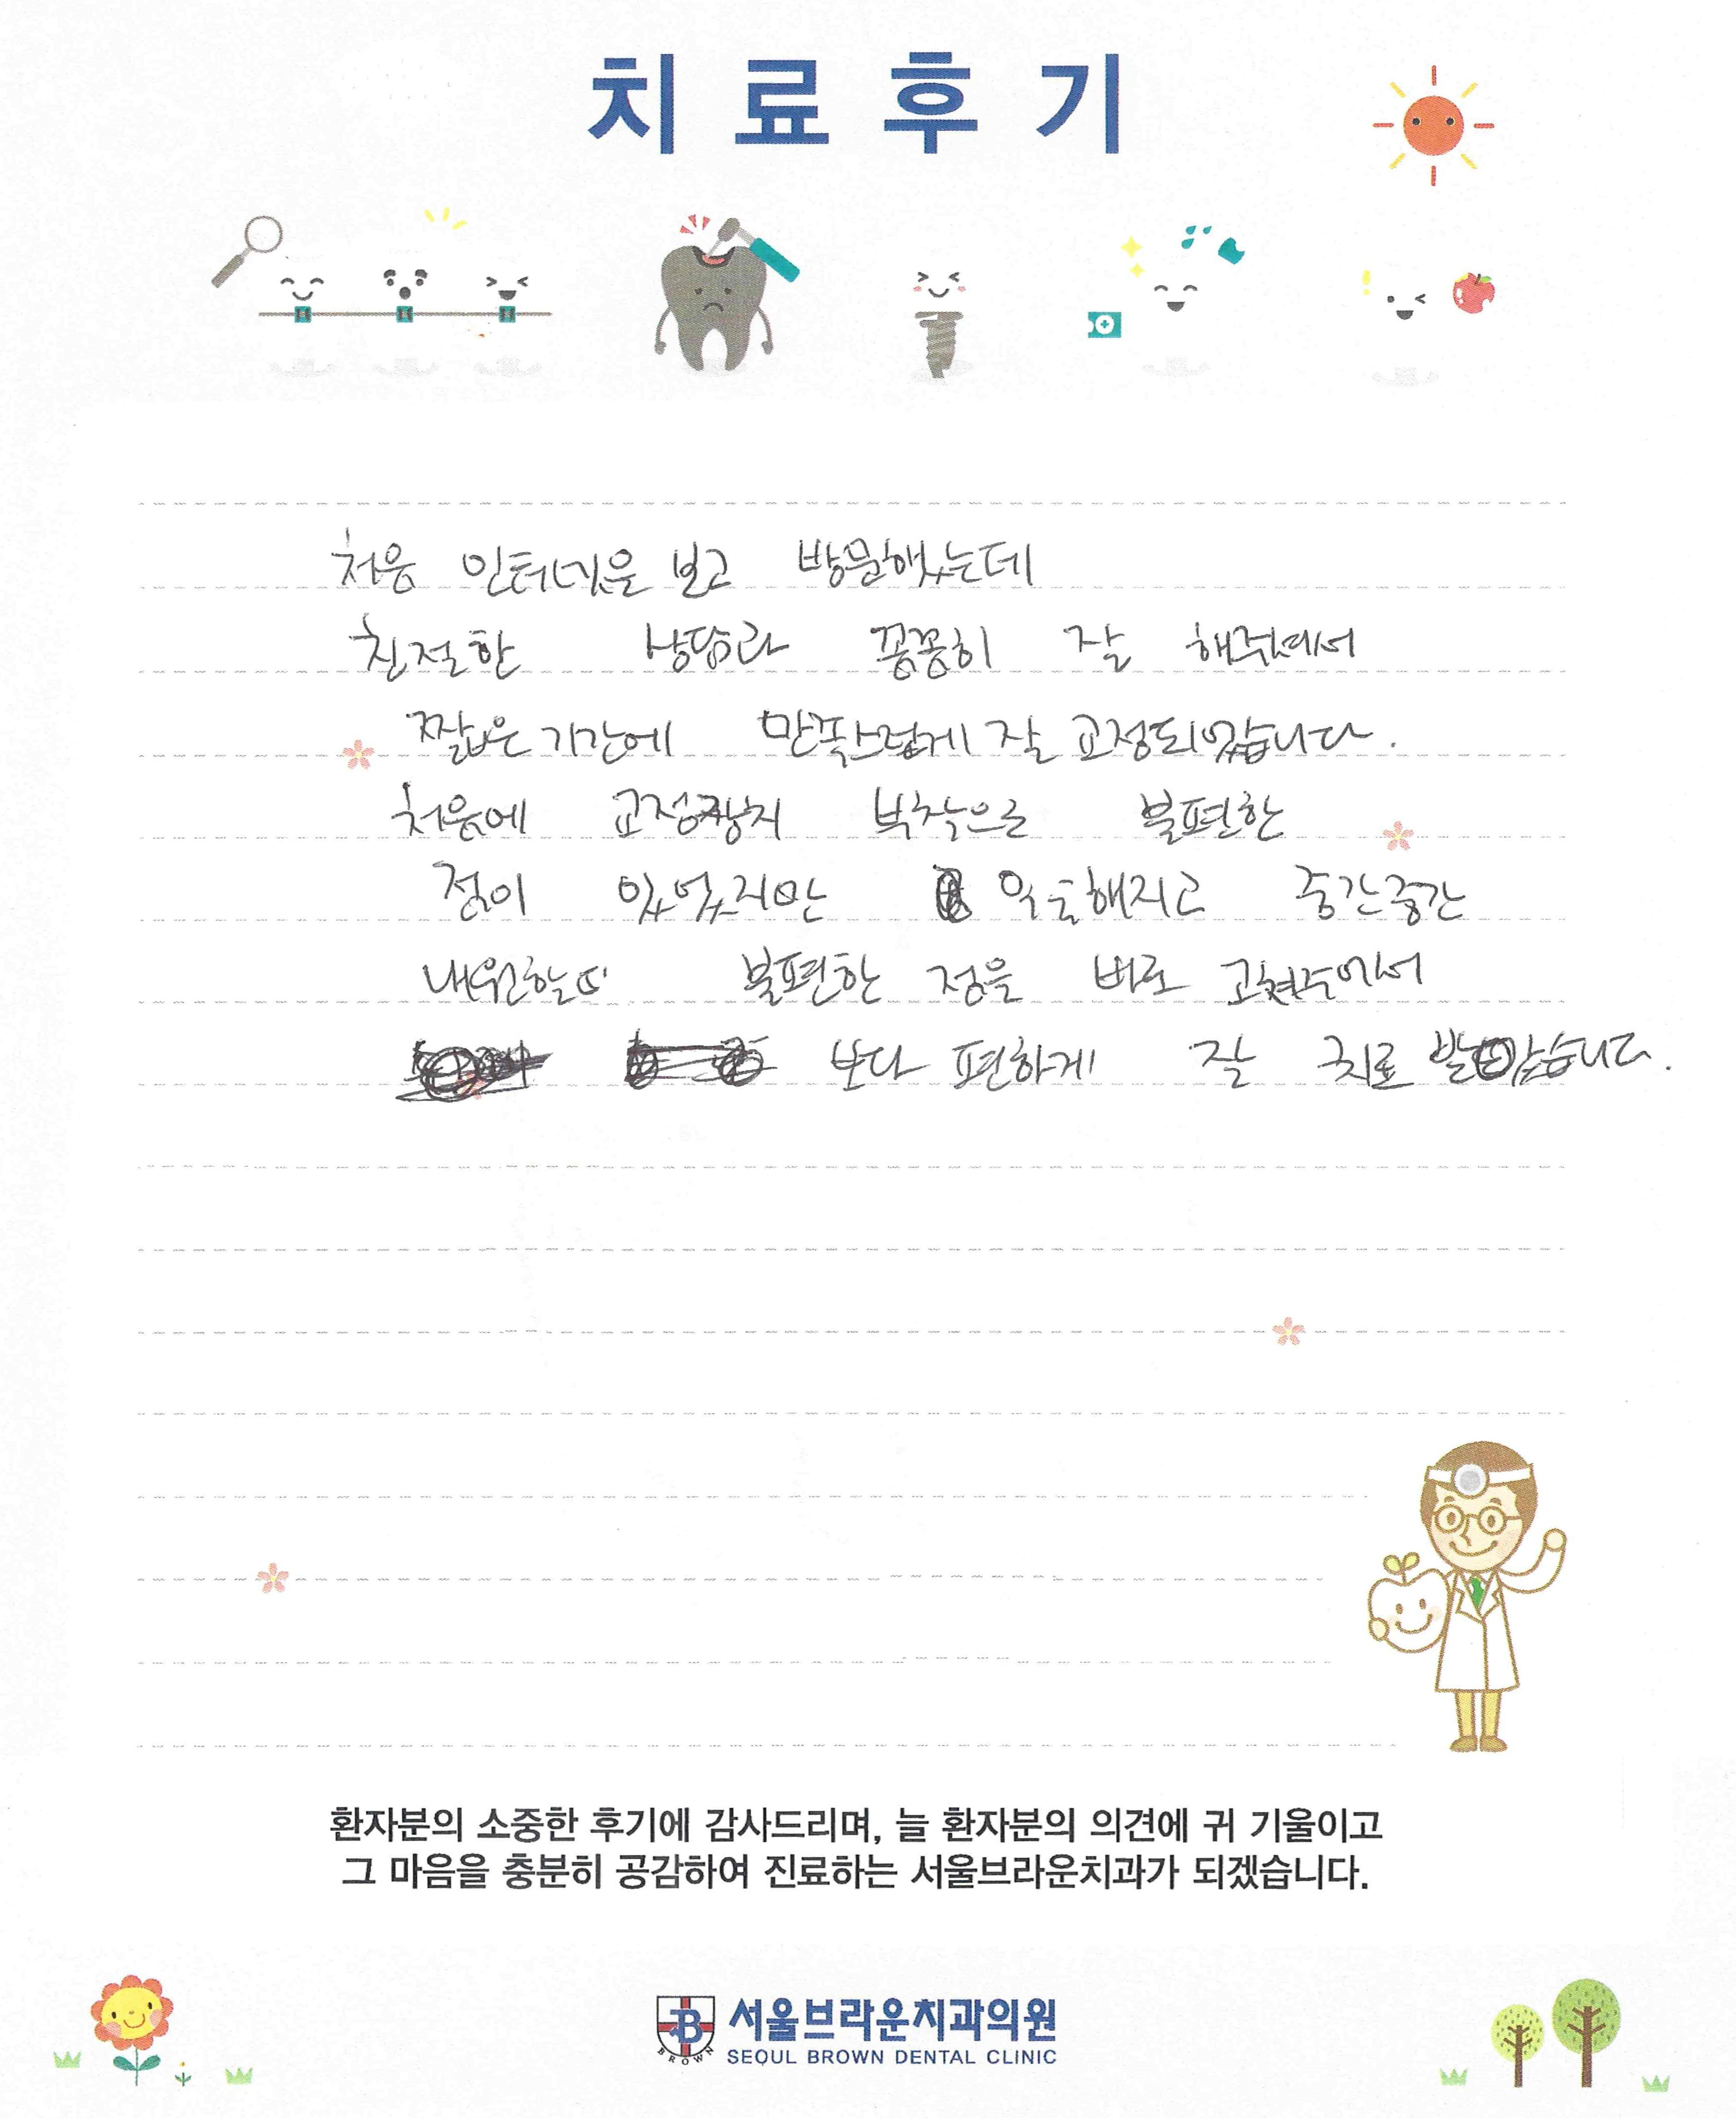 치료후기
처음 인터넷을 보고 방문했는데
친절한 상담과 꼼꼼히 잘 해주셔서
짧은 기간에 만족스럽게 잘 교정되었습니다.
처음에 교정장치 부착으로 불편한
점이 있었지만 익숙해지고 중간중간
내원할때 불편한 점을 바로 고쳐주셔서
보다 편하게 잘 치료 받았습니다.
환자분의 소중한 후기에 감사드리며, 늘 환자분의 의견에 귀 기울이고
그 마음을 충분히 공감하여 진료하는 서울브라운치과가 되겠습니다.
B
BROWN
서울브라운치과의원
SEOUL BROWN DENTAL CLINIC